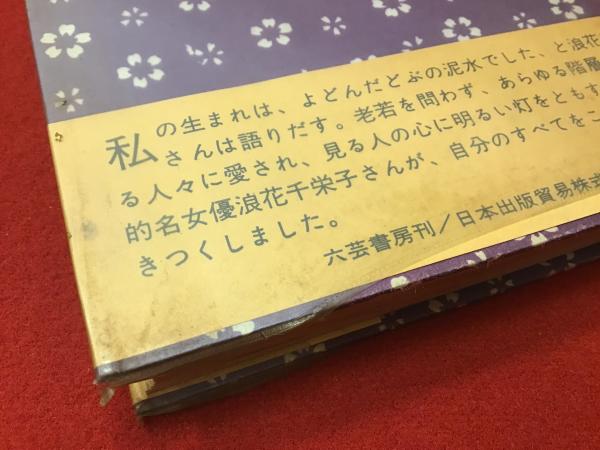 私の生まれは、よどんだどぶの泥水でした、と浪花
さんは語りだす。老若を問わず、あらゆる階層
る人々に愛され、見る人の心に明るい灯をともす
的名女優浪花千栄子さんが、自分のすべてをこ
きつくしました。
六芸書房刊/日本出版貿易株式